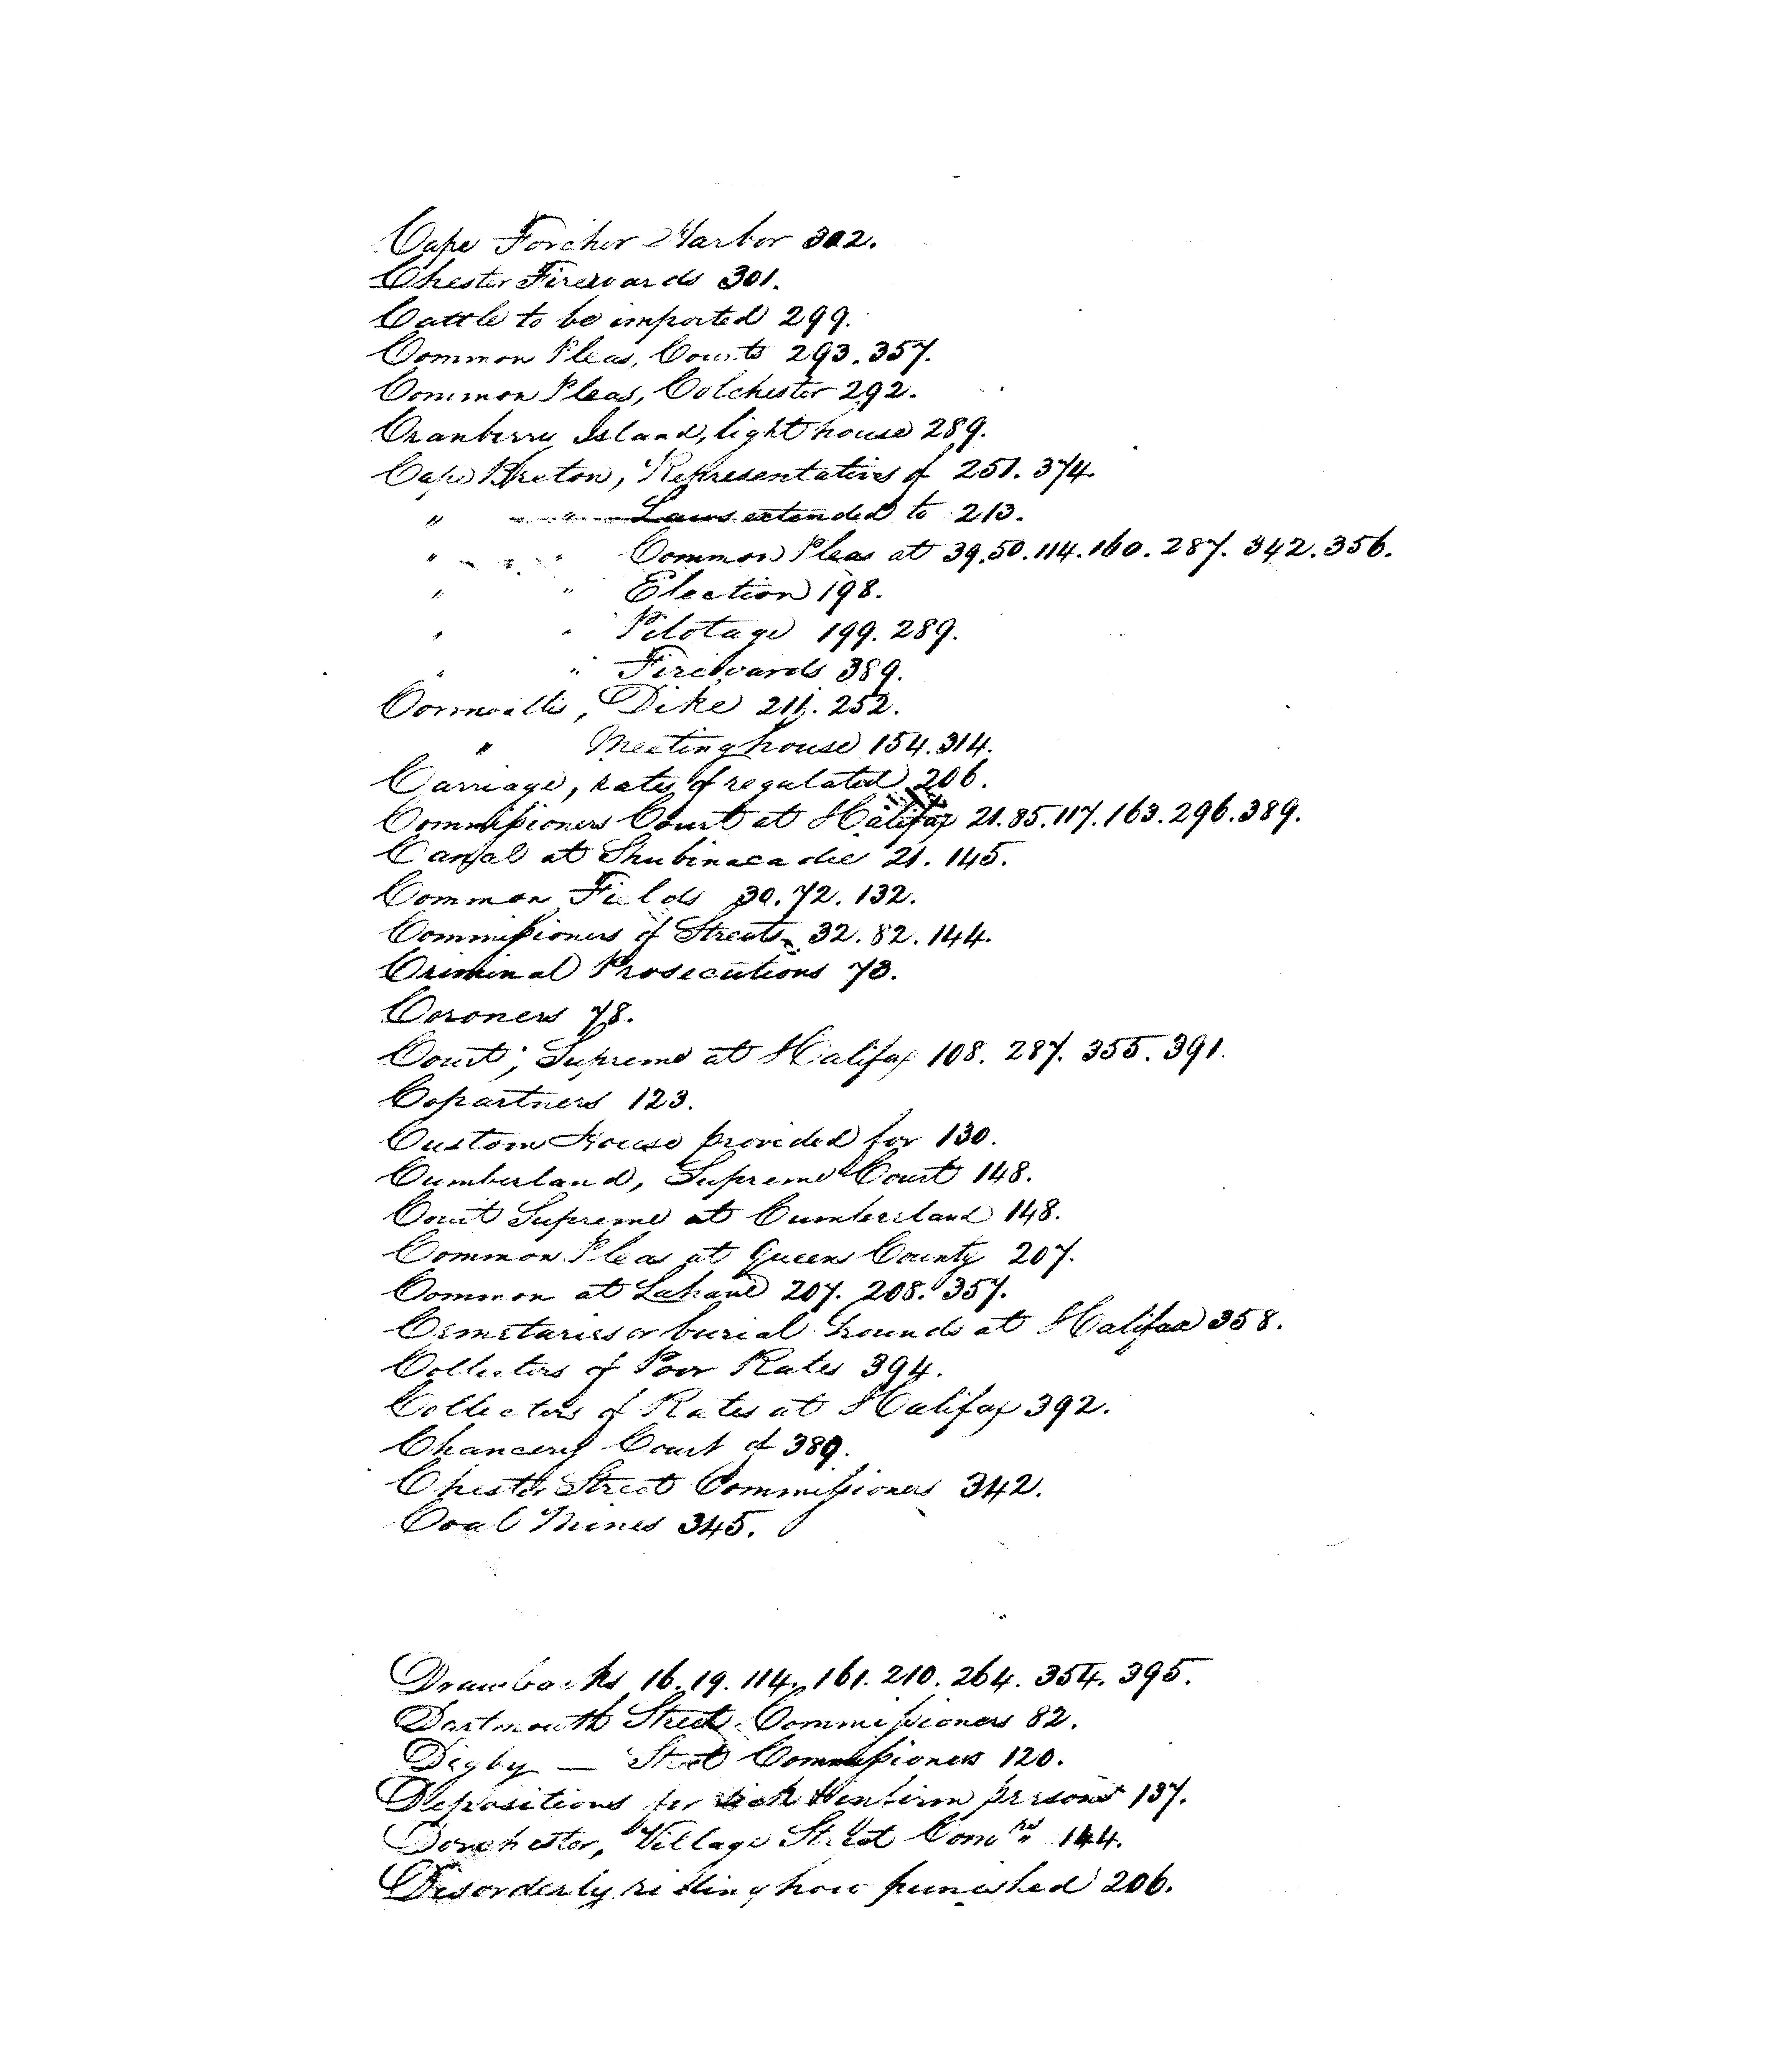 Cape Forchor Harbor 302.
Chester Firewards 301.
Cattle to be imported 299.
Common Pleas, Courts 293. 357.
Common Pleas, Colchester 292.
Cranberry Island, light house 289.
Cape Breton, Representatives of 251. 374.
" " Laws extended to 213.
" " Common Pleas at 39. 50. 114. 160. 287. 342. 356.
" " Election 198.
" " Pilotage 199. 289.
" " Firewards 389.
Cornwallis, Dike 211. 252.
" Meeting house 154. 314.
Carriage, rates of regulated 206.
Commissioners Court at Halifax 21. 85. 117. 163. 296. 389.
Canal at Shubinacadie 21. 145.
Common Fields 30. 72. 132.
Commissioners of Streets 32. 82. 144.
Criminal Prosecutions 73.
Coroners 78.
Court, Supreme at Halifax 108. 287. 355. 391.
Copartners 123.
Custom House provided for 130.
Cumberland, Supreme Court 148.
Court Supreme at Cumberland 148.
Common Pleas at Queens County 207.
Common at Lahave 207. 208. 357.
Cemetaries or burial Grounds at Halifax 358.
Collectors of Poor Rates 394.
Collectors of Rates at Halifax 392.
Chancery Court of 389.
Chester Street Commissioners 342.
Coal Mines 345.
Drawbacks 16. 19. 114. 161. 210. 264. 354. 395.
Dartmouth Street Commissioners 82.
Digby — Street Commissioners 120.
Depositions for sick & infirm persons 137.
Dorchester, Village Street Comrs 144.
Disorderly riding how punished 206.